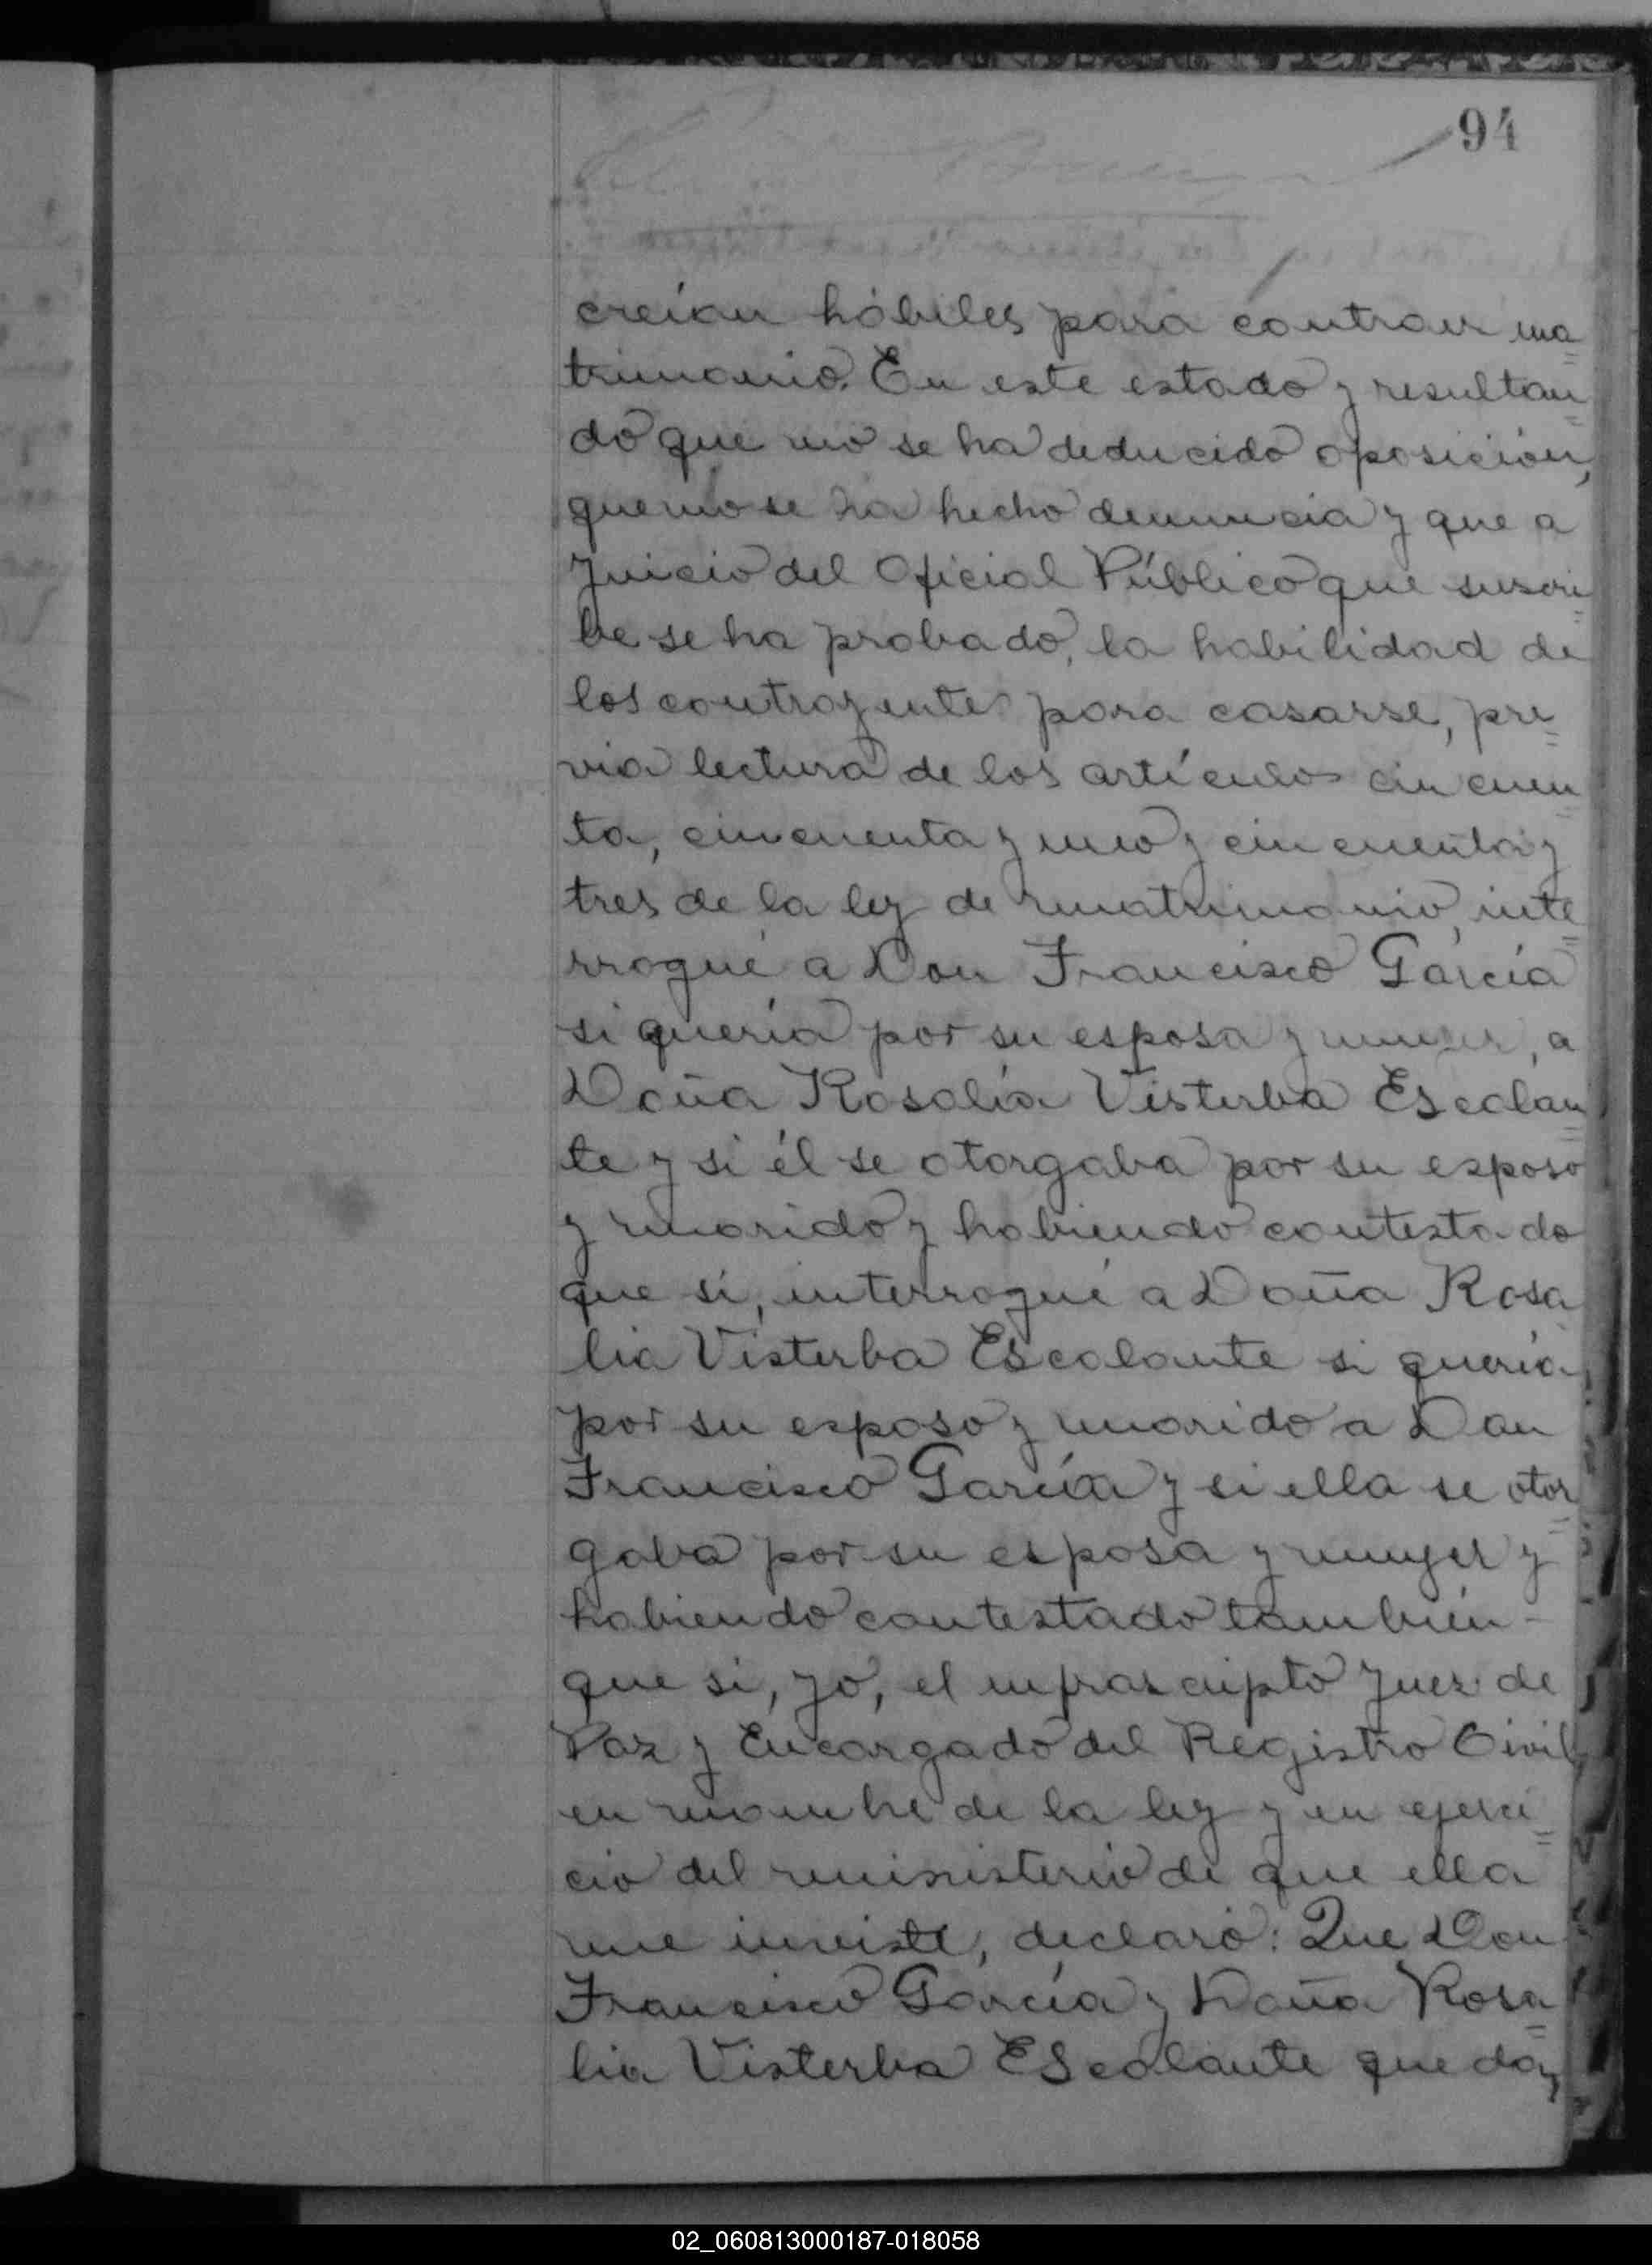 94
creían hábiles para contraer ma=
trimonio. En este estado y resultan=
do que no se ha deducido oposición,
que no se ha hecho denuncia y que a
juicio del Oficial Público que suscri=
be se ha probado, la habilidad de
los contrayente para casarse, pre=
via lectura de los artículos cincuen=
ta, cincuenta y uno y cincuenta y
tres de la ley de matrimonio, inte=
rrogué a Don Francisco García
si quería por su esposa y mujer, a
Doña Rosalía Visterba Escolan=
te y si él se otorgaba por su esposo
y marido y habiendo contestado
que sí, interrogué a Doña Rosa
lia Visterba Escolante si quería
por su esposo y marido a Don
Francisco García y si ella se otor=
gaba por su esposa y mujer y
habiendo contestado también-
que si, yo, el infrascripto Juez de
Paz y Encargado del Registro Civil
en nombre de la ley y en ejerci=
cio del ministerio de que ella
me inviste, declaro: Que Don
Francisco García y Doña Rosa=
lia Visterba Escolante quedan,
02_060813000187-018058